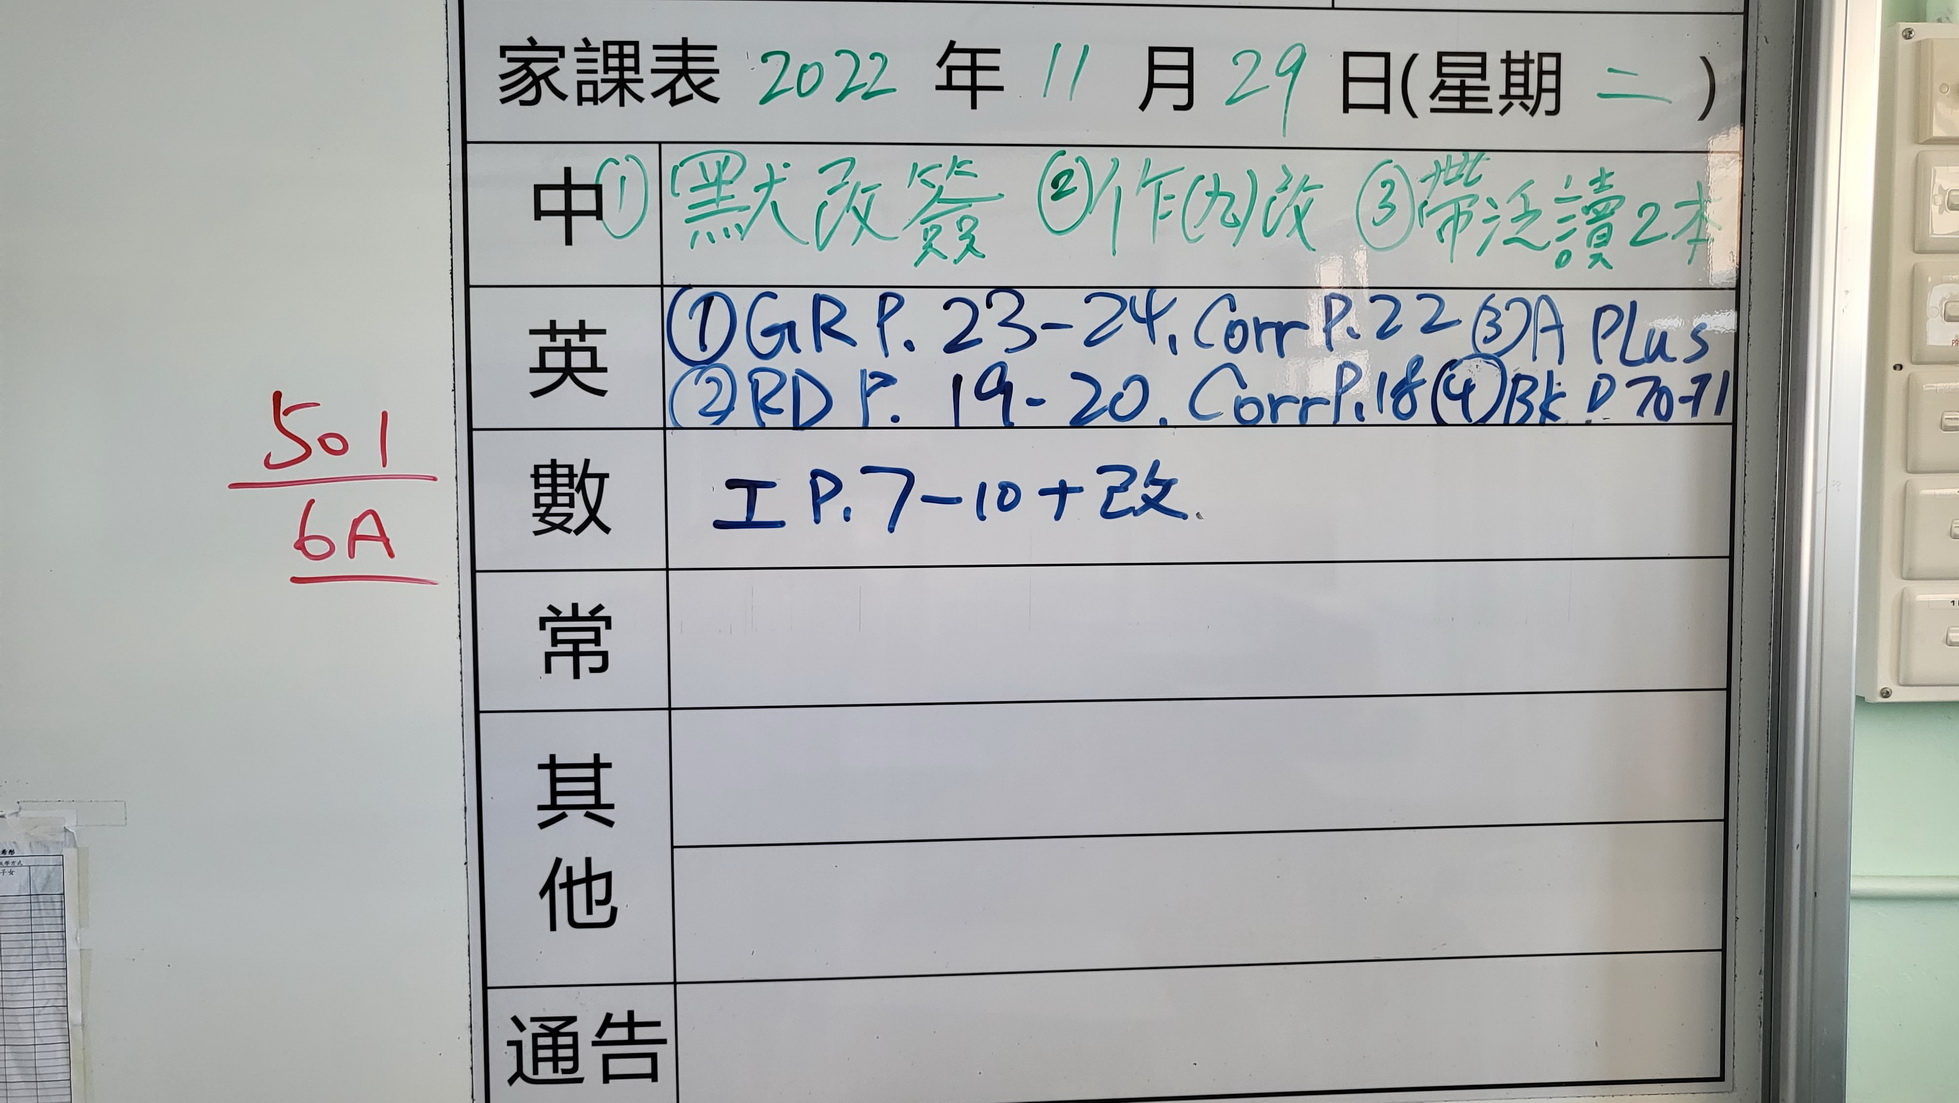 家課表 2022 年 11 月 29 日(星期 二 )
中 ① 默改簽 ② 作(九)改 ③ 帶泛讀2本
英 ① GR P. 23-24. Corr P.22 ③ A Plus
② RD P. 19-20. Corr P.18 ④ Bk P.70-71
數 工 P.7-10+改.
常
其他
通告
501
6A